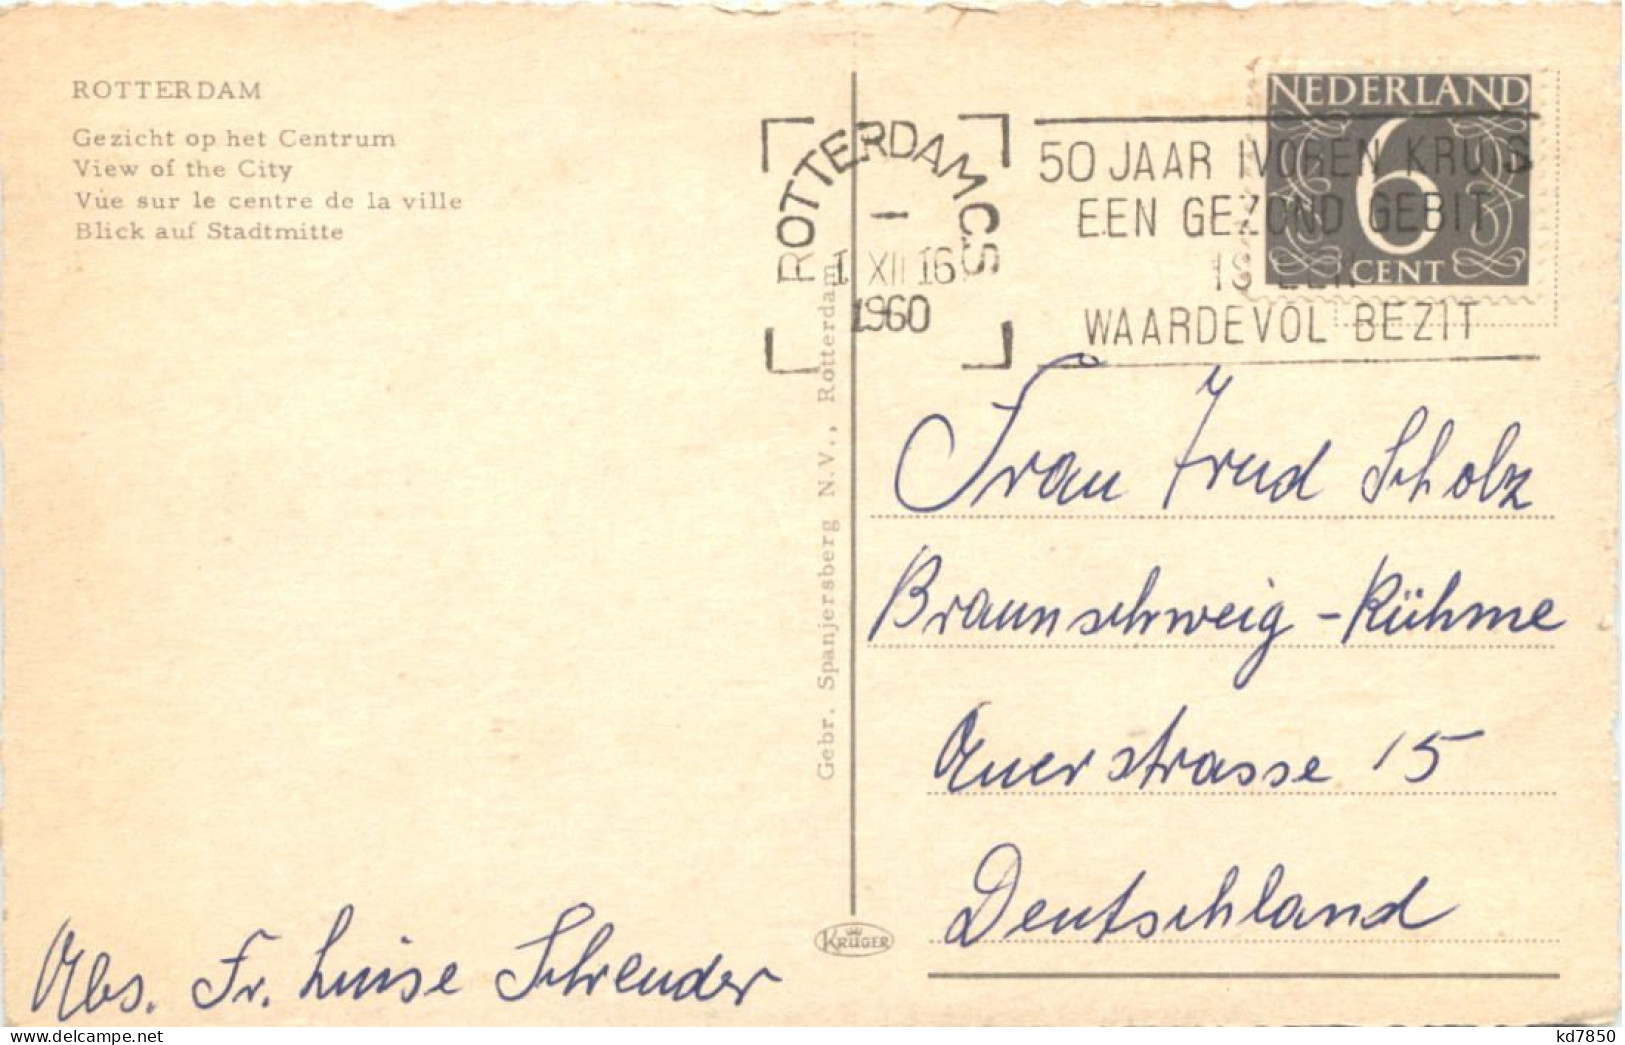 ROTTERDAM
Gezicht op het Centrum
View of the City
Vue sur le centre de la ville
Blick auf Stadtmitte
Gebr. Spanjersberg N.V., Rotterdam
KRÜGER
ROTTERDAM CS
1 XII 16
1960
50 JAAR IVOREN KRUIS
EEN GEZOND GEBIT
IS EEN
WAARDEVOL BEZIT
NEDERLAND
6
CENT
Frau Trud Scholz
Braunschweig - Rühme
Auerstrasse 15
Deutschland
Abs. Fr. Luise Schreuder
kd7850